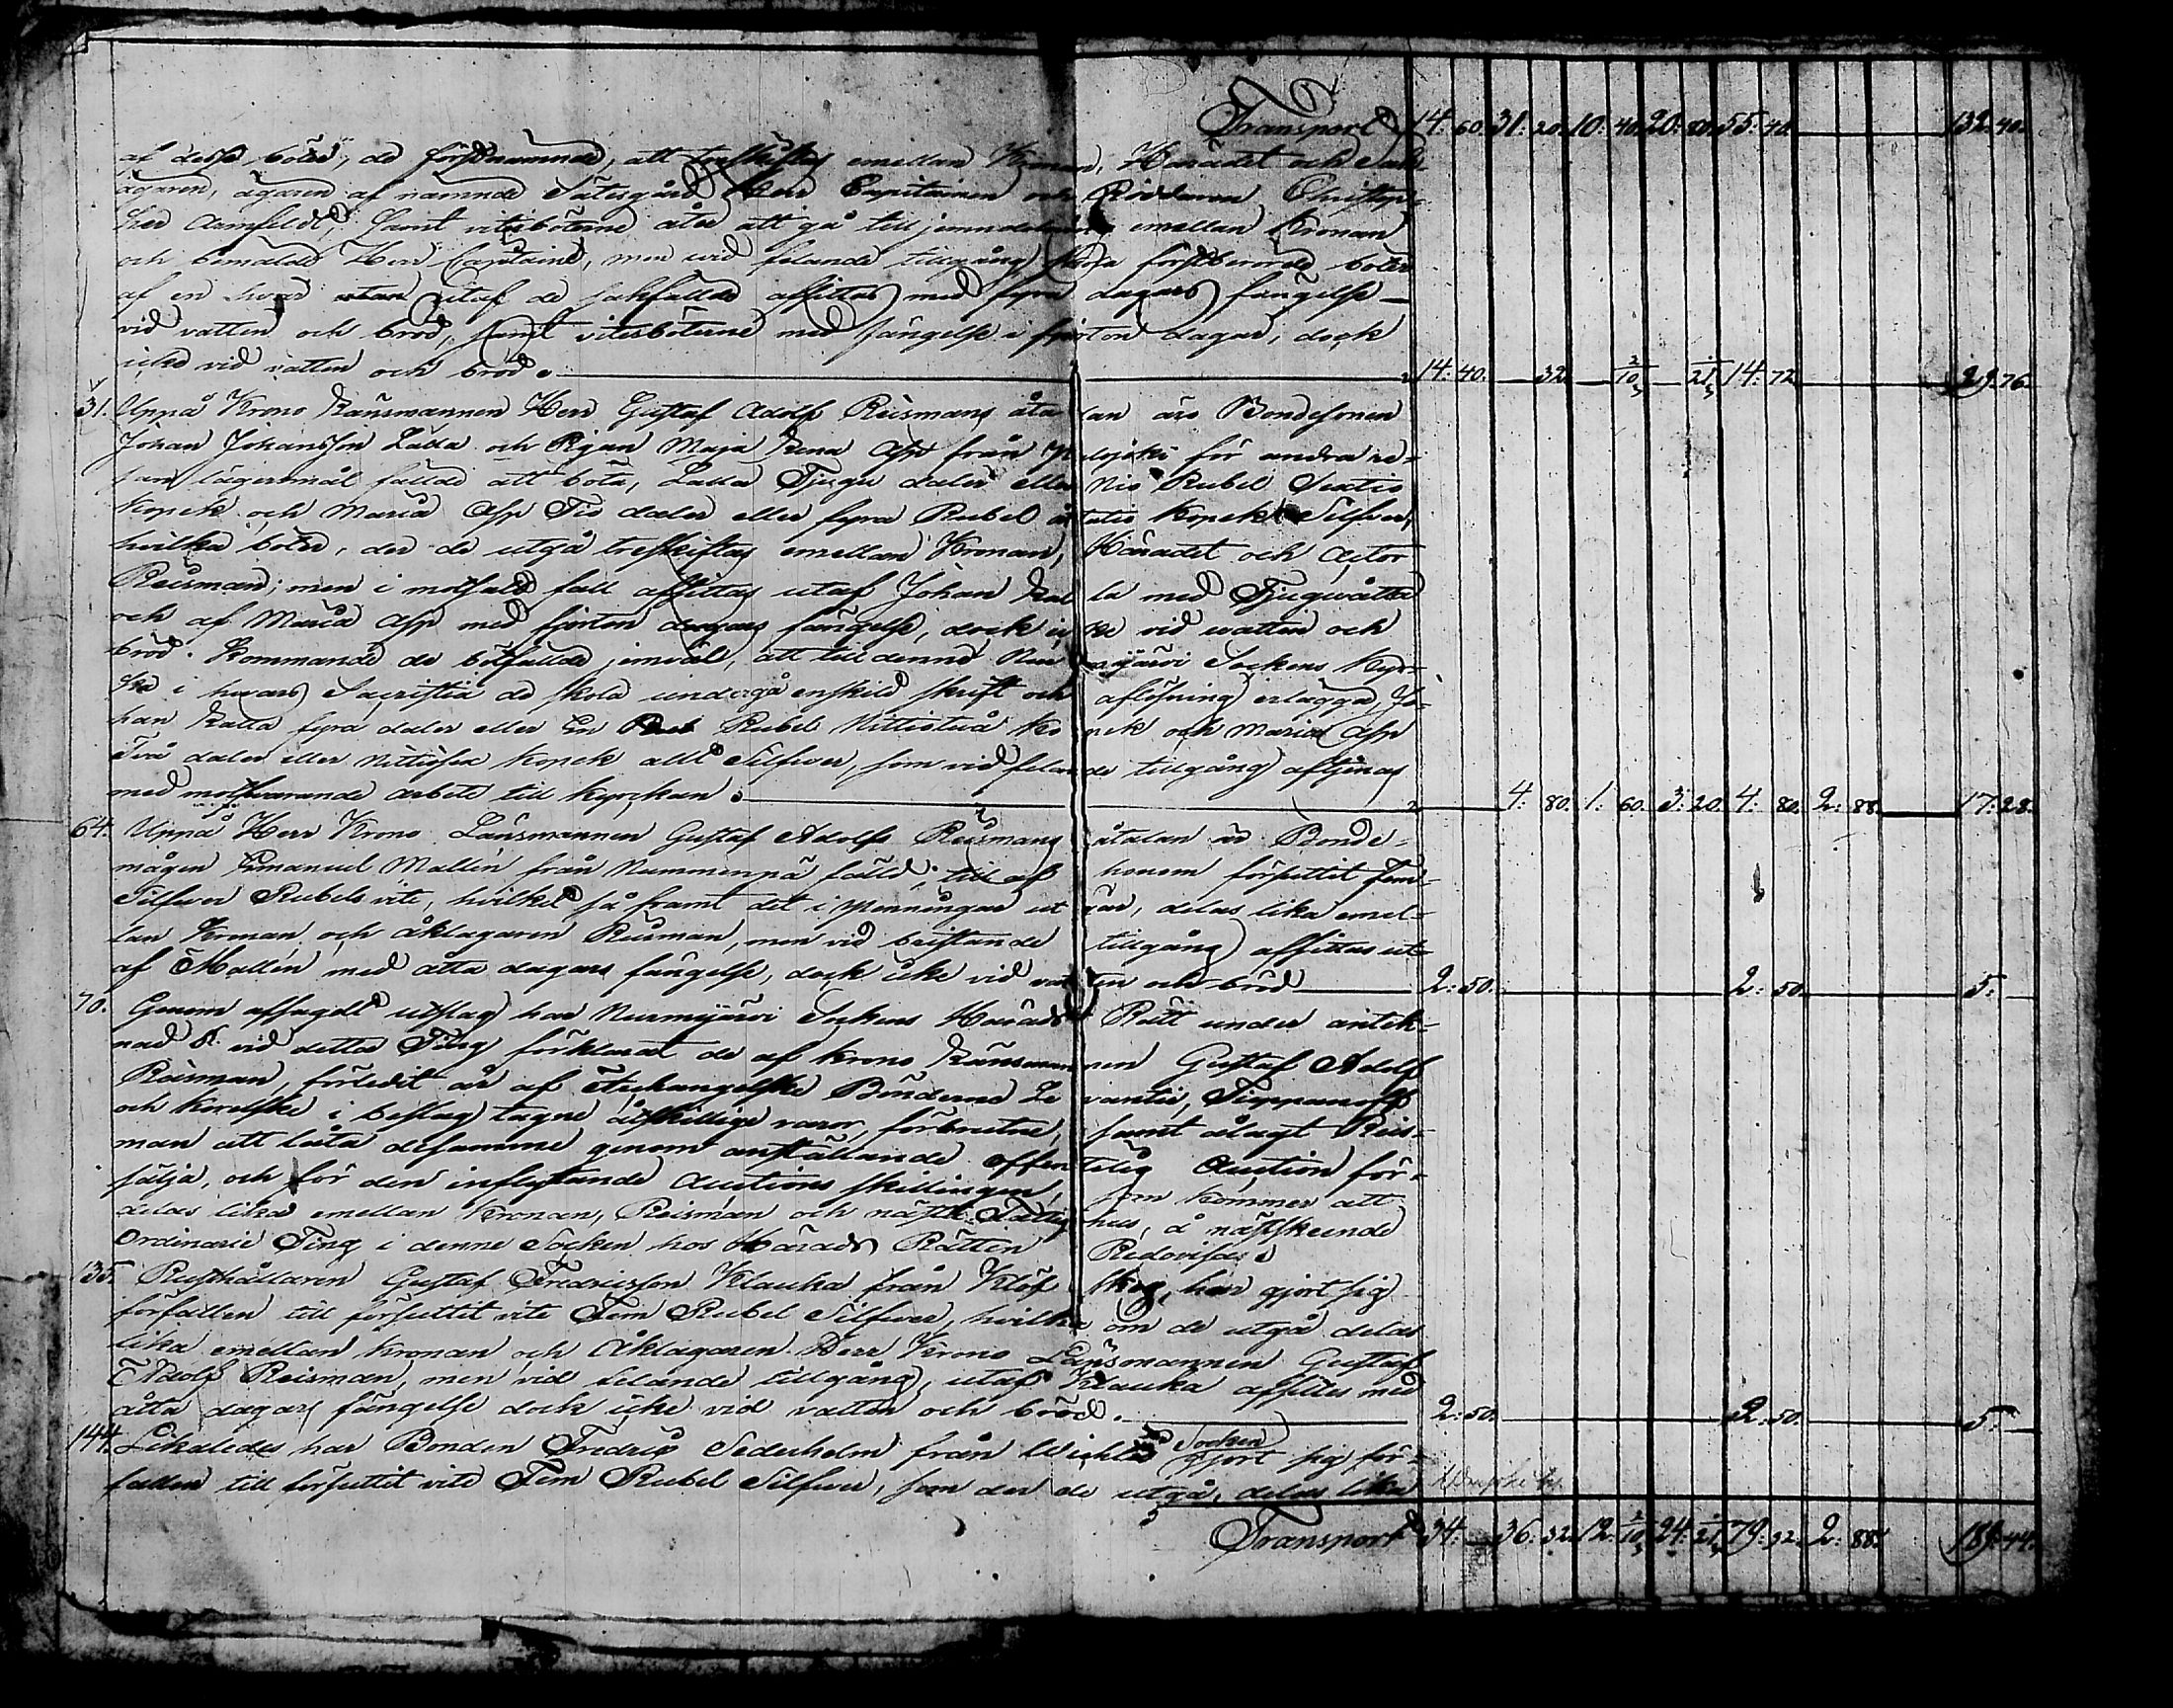 Transport 14: 60. 31: 20. 10: 40. 20: 80. 55: 40. 132: 40.
af desse böter, de förstnämnde, att treskiftas emellan Kronan, Häradet och Sak-
ägaren, ägaren af nämnde Sätesgård Herr Capitainen och Riddaren Christop-
her Armfeldt, samt vitesböterne åter att gå till jemndelning emellan Kronan
och bemälde Herr Capitaine, men vid felande tillgång skola förstberörde böter
af en hvar utaf de sakfällde afsittas med fyra dagars fängelse
vid vatten och bröd, samt vitesböterne med fängelse i fjorton dagar, dock
icke vid vatten och bröd. 14: 40. 32 2/10 21 14: 72 29: 76.
31. Uppå Krono Länsmannen Herr Gustaf Adolf Reismans åtalan äro Bondesonen
Johan Johansson Lalla och Pigan Maja Lena Asp från för andra re-
san lägersmål fällde att böta, Lalla Tjugu daler eller Nio Rubel Sextio
Kopek och Maria Asp Tio daler eller fyra Rubel åttatio Kopek Silfver,
hvilka böter, der de utgå treskiftas emellan Kronan, Häradet och Actor
Reisman; men i motsatt fall afsittas utaf Johan Lalla med Tjuguåtta
och af Maria Asp med fjorton dagars fängelse, dock icke vid vatten och
bröd. Kommande de bötfällde jemväl, att till denne Nurmijärvi Sockens Kyr-
ka i hvars Sacristia de skola undergå enskild skrift och aflösning erlägga, Jo-
han Lalla fyra daler eller En Rubel Nittiotvå Kopek och Maria Asp
Två daler eller Nittiosex Kopek allt Silfver, som vid felande tillgång aftjenas
med motsvarande arbete till Kyrckan. 4: 80. 1: 60. 3: 20. 4: 80. 2: 88. 17: 28.
64. Uppå Herr Krono Länsmannen Gustaf Adolf Reismans åtalan är Bonde-
mågen Emanuel Mallén från Nummenpä fälld, till af honom försuttit Fem
Silfver Rubels vite, hvilket så framt det i penningar utgår, delas lika emel-
lan Kronan och åklagaren Reisman, men vid bristande tillgång afsittas ut-
af Mallén med åtta dagars fängelse, dock icke vid vatten och bröd 2: 50. 2: 50. 5:
70. Genom afsagdt utslag har Nurmijärvi Sockens Härads Rätt under anteck-
nad § vid detta Ting förklarat de af Krono Länsmannen Gustaf Adolf
Reisman, förledit år af Archangelske Bönderne Le vantie, Tioppanoff
och Korelske i beslag tagne åtskillige varor, förbrutne, samt ålagt Reis-
man att låta desamme genom anställande offentelig Auction för-
sälja, och för den inflytande Auctions skillingen, som kommer att
delas lika emellan Kronan, Reisman och näste Fattighus, å nästskeende
Ordinarie Ting i denne Socken hos Härads Rätten Redovisas.
135. Rusthållaren Gustaf Fredricsson Klauka från Klöfskog, har gjort sig
förfallen till försuttit vite Fem Rubel Silfver, hvilka om de utgå delas
lika emellan Kronan och Åklagaren Herr Krono Länsmannen Gustaf
Adolf Reisman, men vid felande tillgång, utaf Klauka afsittes med
åtta dagars fängelse dock icke vid vatten och bröd. 2: 50. 2: 50. 5:
144. Likaledes har Bonden Fredric Sederholm från Wichtis Socken gjort sig för-
fallen till försuttit vite Fem Rubel Silfver, som der de utgå, delas lika
Transport 34: 36: 32 12: 2/10 24: 21 79: 92. 2: 88. 189: 44.